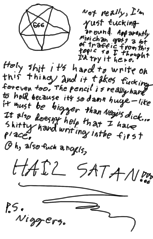 666
Not really, I'm
just fucking
around. Apparently
Munchkin gets a lot
of traffic from this
topic so I thought
I'd try it here.
Holy shit it's hard to write on
this thing and it takes fucking
forever too. The pencil is really hard
to hold because it's so damn huge - like
it must be bigger than dick...
It also doesn't help that I have
shitty hand writing in the first
place.
Oh, also fuck angels,
HAIL SATAN
P.S.
Niggers.